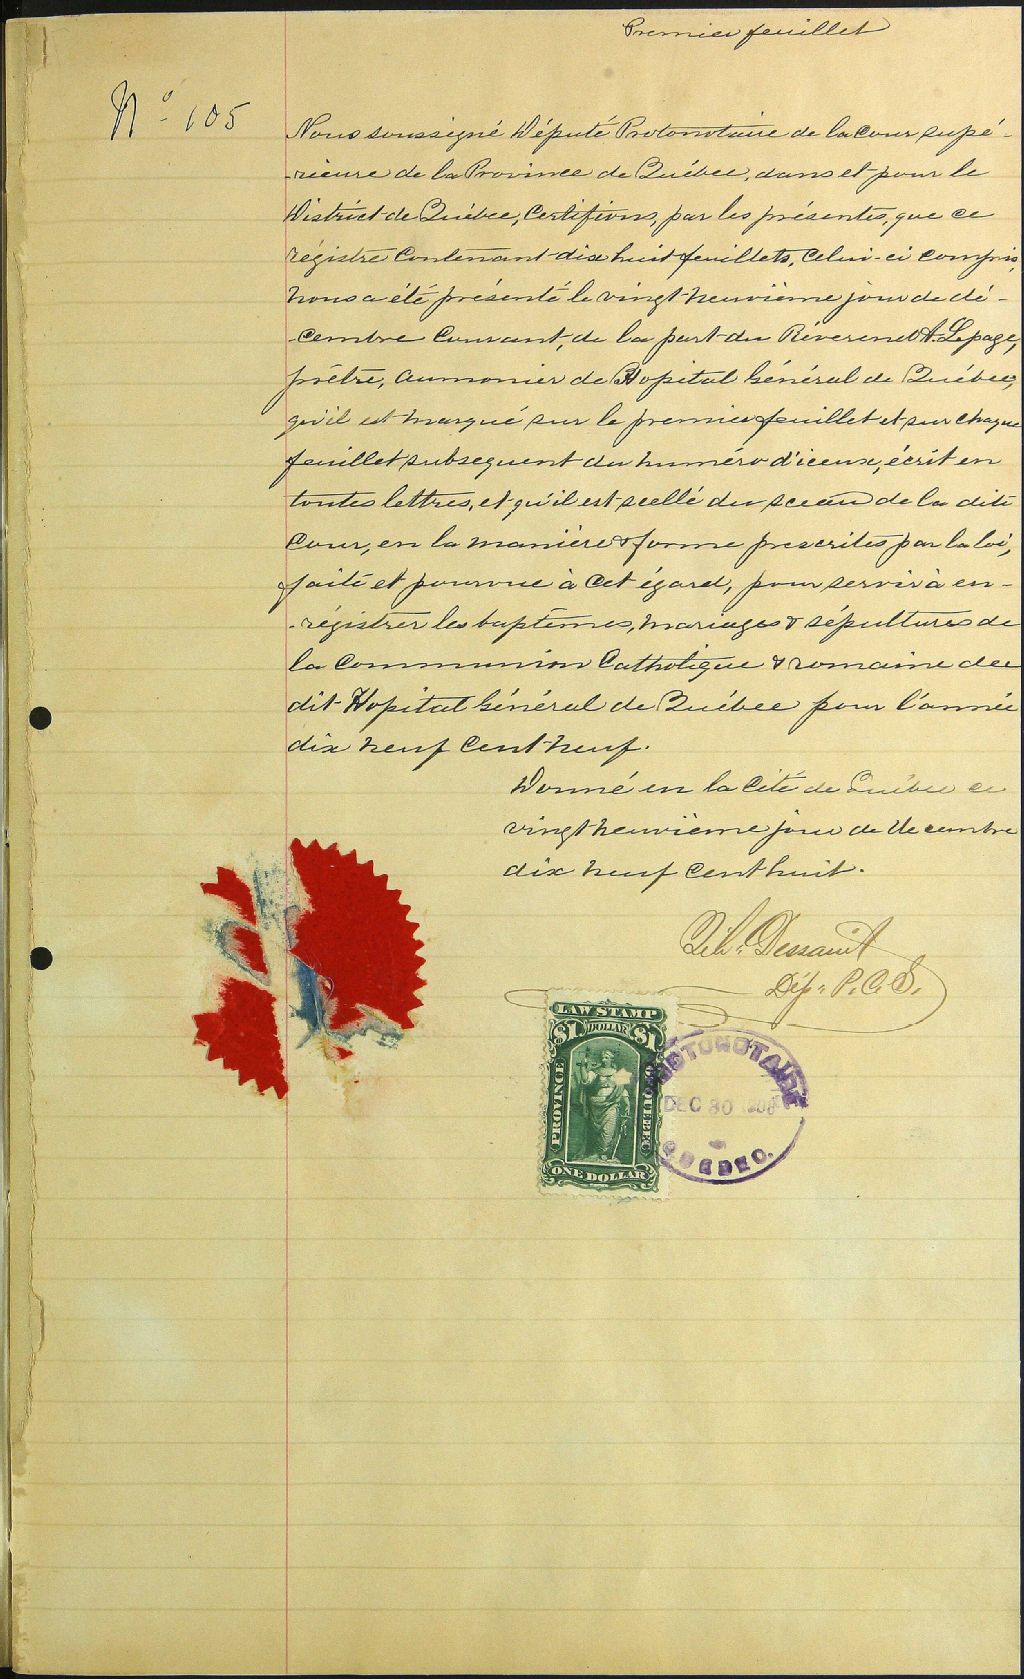 Premier feuillet
No 105
Nous soussigné Député Protonotaire de la Cour supé-
-rieure de la Province de Québec, dans et pour le
District de Québec, Certifions, par les présentes, que ce
régistre contenant dix huit feuillets, celui-ci compris,
nous a été présenté le vingt neuvième jour de dé-
-cembre courant, de la part du Réverend A. Lepage,
prêtre, aumonier de Hopital Général de Québec,
qu'il est marqué sur le premier feuillet et sur chaque
feuillet subsequent du numéro d'iceux, écrit en
toutes lettres, et qu'il est scellé du sceau de la dite
Cour, en la manière & forme prescrites par la loi,
faite et pourvue à cet égard, pour servir à en-
-régistrer les baptêmes, mariages & sépultures de
la Communion Catholique & romaine du
dit Hopital Général de Québec pour l'année
dix neuf cent neuf.
Donné en la Cité de Québec ce
vingt neuvième jour de décembre
dix neuf cent huit.
Dessault
Dép. P. C. S.
LAW STAMP
$1 DOLLAR $1
PROVINCE OF QUEBEC
ONE DOLLAR
PROTONOTAIRE
DEC 30 1908
QUEBEC.